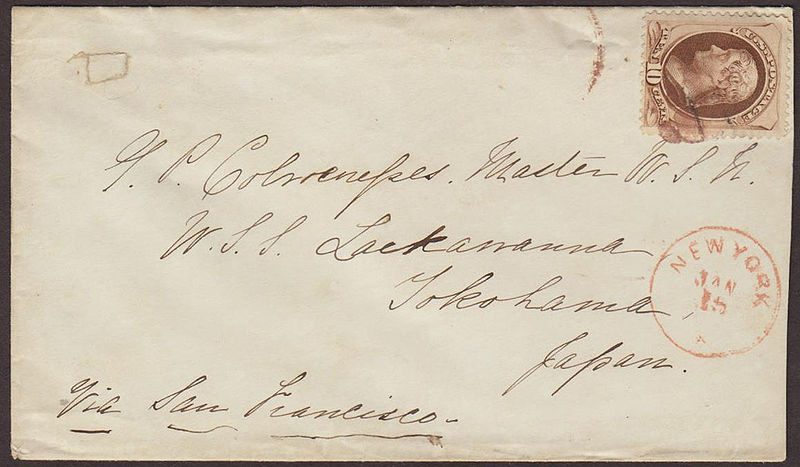 G. P. Colvocoresses. Master U.S.N.
U.S.S. Lackawanna
Yokohama,
Japan.
Via San Francisco
NEW YORK
JAN
15
10